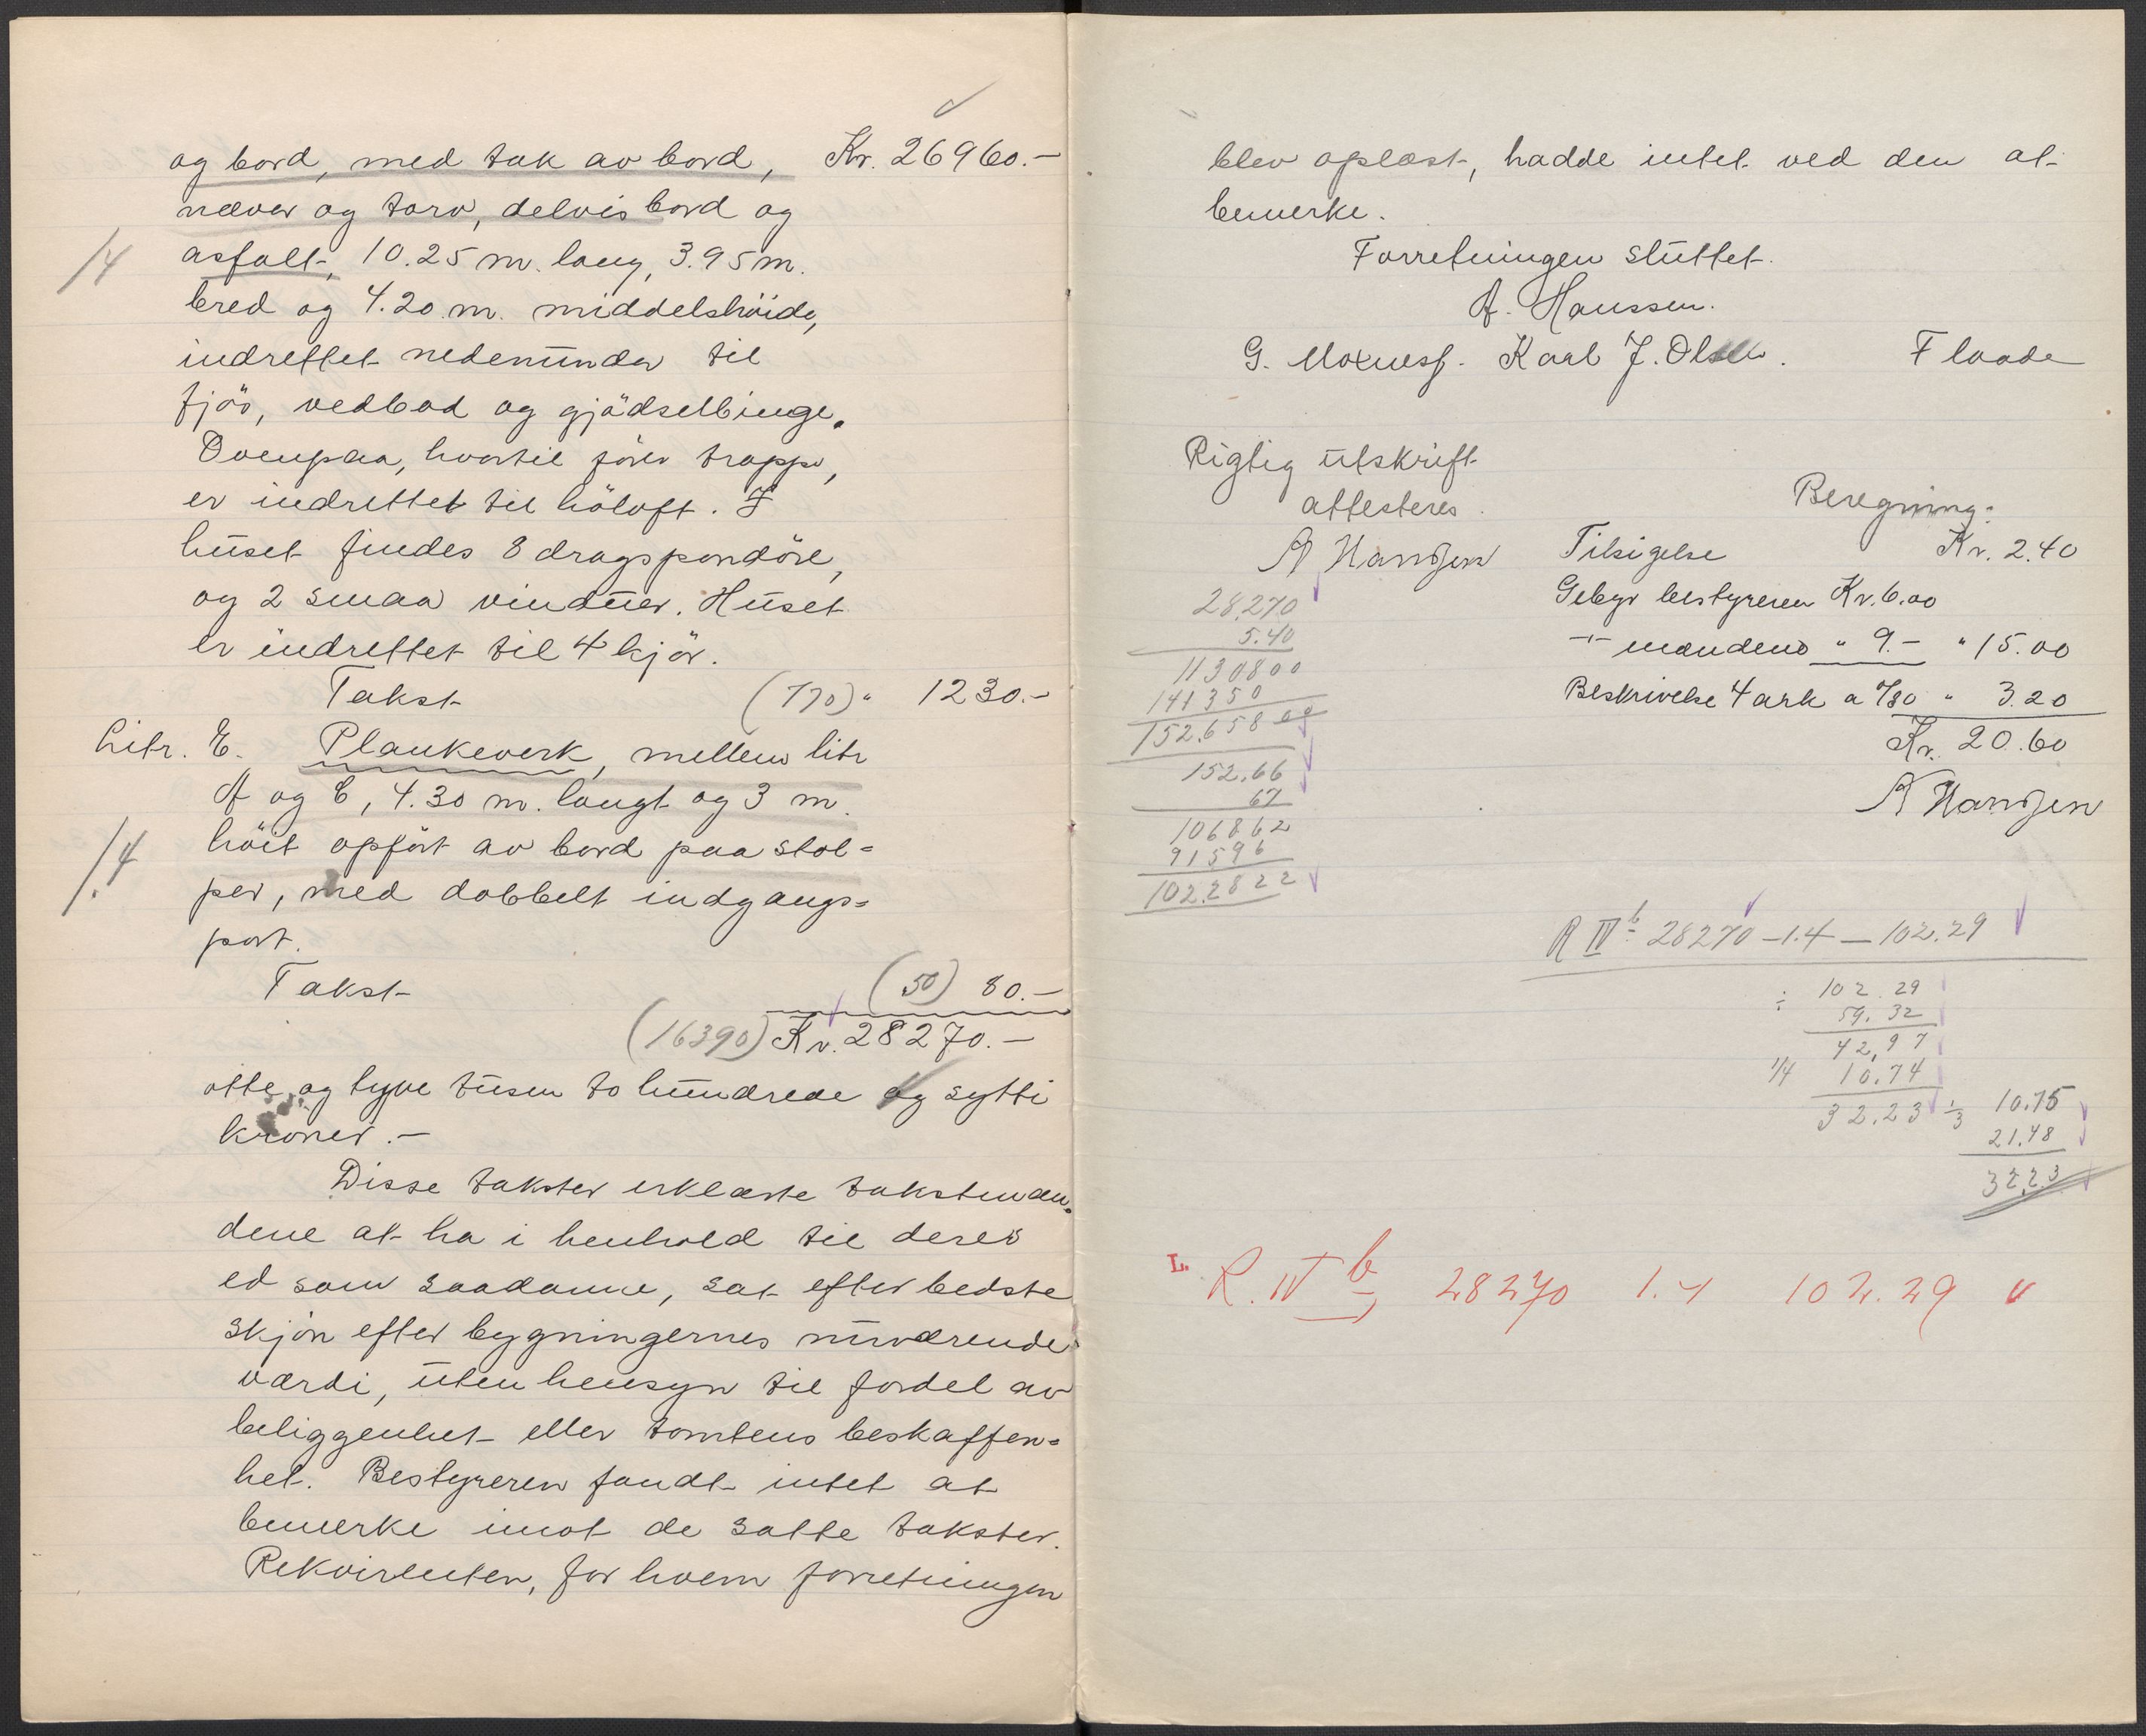 og bord, med tak av bord, Kr. 26960.-
næver og torv, delvis bord og
asfalt, 10.25 m. lang, 3.95 m.
14
bred og 4.20 m. middelshöide,
indrettet nedenunder til
fjös, vedbod og gjödselbinge.
Ovenpaa, hvortil förer trappe,
er indrettet til höloft. I
huset findes 8 dragspondöre,
og 2 smaa vinduer. Huset
er indrettet til 4 kjör.
Takst (770) " 1230.-
Litr. E. Plankeverk, mellem litr
A og C, 4.30 m. langt og 3 m.
1.4
höit opfört av bord paa stol=
per, med dobbelt indgangs=
port.
Takst (50) 80.-
(16390) Kr. 28270.-
otte og tyve tusen to hundrede og sytti
kroner.-
Disse takster erklærte takstmæn-
dene at ha i henhold til deres
ed som saadanne, sat efter bedste
skjön efter bygningernes nuværende
værdi, uten hensyn til fordel av
beliggenhet eller tomtens beskaffen=
het. Bestyreren fandt intet at
bemerke imot de satte takster.
Rekvirenten, for hvem forretningen
blev oplæst, hadde intet ved den at
bemerke.
Forretningen sluttet.
A. Hanssen.
G. Karl J. Olsen. Flaade
Rigtig utskrift
attesteres.
A Hanssen
Beregning:
Tilsigelse Kr. 2.40
Gebyr bestyreren Kr. 6.00
-"- mændene " 9.- " 15.00
Beskrivelse 4 ark a /80 " 3.20
Kr. 20.60
A Hanssen
28270
5.40
1130800
141350
152.658 00
152.66
67
106862
91596
102.2822
R IV b 28270 - 1.4 - 102.29
102.29
÷ 59.32
42,97
1/4 10.74
32.23 1/3 10.75
21.48
32,23
L. R. IV b 28270 1.4 102.29